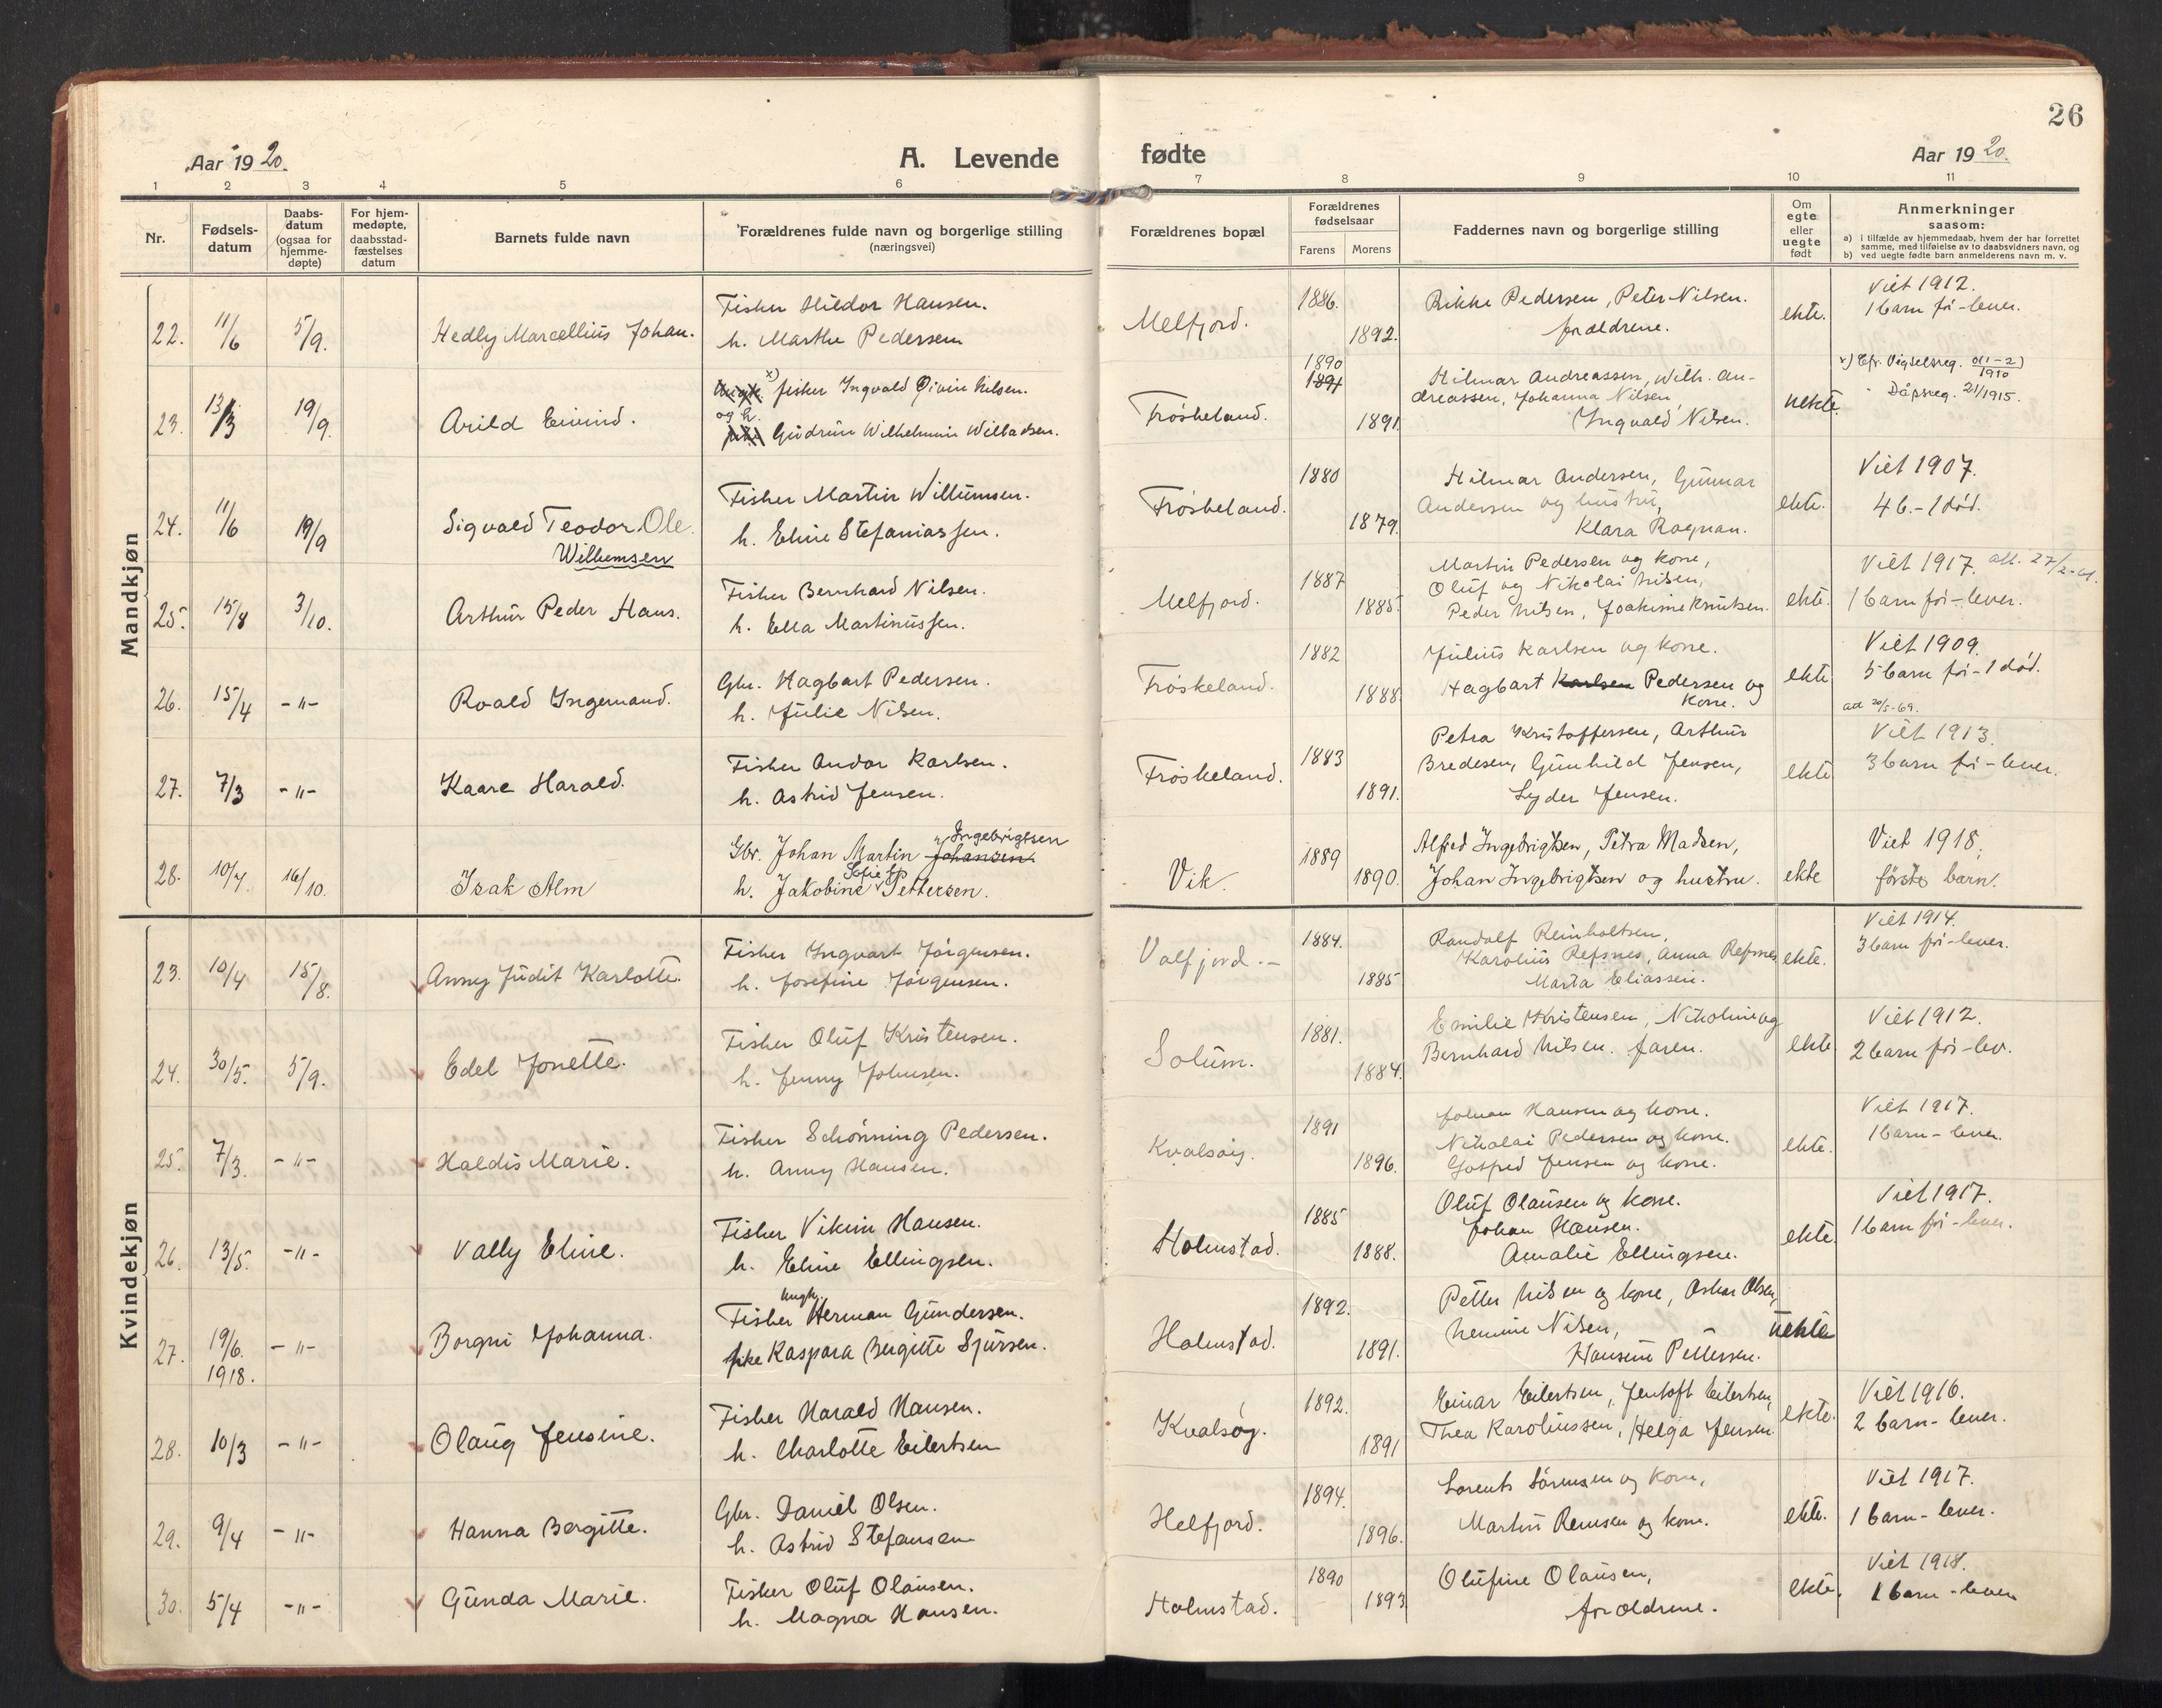 26
Aar 1920.
A. Levende fødte
Aar 1920.
1 2 3 4 5 6 7 8 9 10 11
Nr.
Fødsels-
datum
Daabs-
datum
(ogsaa for
hjemme-
døpte)
For hjem-
medøpte,
daabsstad-
fæstelses
datum
Barnets fulde navn
Forældrenes fulde navn og borgerlige stilling
(næringsvei)
Forældrenes bopæl
Forældrenes
fødselsaar
Farens Morens
Faddernes navn og borgerlige stilling
Om
egte
eller
uegte
født
Anmerkninger
saasom:
a) i tilfælde av hjemmedaab, hvem der har forrettet
samme, med tilføielse av to daabsvidners navn, og
b) ved uegte fødte barn anmelderens navn m. v.
Mandkjøn
22. 11/6 5/9. Hedly Marcellius Johan.
Fisker Hildor Hansen.
h. Marthe Pedersen
Melfjord.
1886.
1892.
Rikke Pedersen, Peter Nilsen.
forældrene.
ekte.
Viet 1912.
1 barn før - lever.
23. 13/3 19/9. Arild Eivind.
Ungk. x) fisker Ingvald Øivin Nilsen.
og h.
pike Gudrun Wilhelmine Willadsen.
Frøskeland.
1890
1891
1891.
Hilmar Andreassen, Wilh. An-
dreassen, Johanna Nilsen,
Ingvald Nilsen.
uekte.
x) Cfr. Vigselsreg.
Dåpsreg. 21/1915.
24. 11/6 19/9 Sigvald Teodor Ole.
Willumsen
Fisker Martin Willumsen.
h. Eline Stefaniassen.
Frøskeland.
1880
1879.
Hilmar Andersen, Gunnar
Andersen og hustru,
Klara Rognan.
ekte.
Viet 1907.
4 b. - 1 død.
25. 15/8 3/10. Arthur Peder Hans.
Fisker Bernhard Nilsen.
h. Ella Martinussen.
Melfjord.
1887
1885.
Martin Pedersen og kone,
Oluf og Nikolai Nilsen,
Peder Nilsen, Joakime Knutsen.
ekte.
Viet 1917. att. 27/2-61.
1 barn før - lever.
26. 15/4 -"- Roald Ingemand.
Gbr. Hagbart Pedersen.
h. Julie Nilsen.
Frøskeland.
1882
1888.
Julius Karlsen og kone.
Hagbart Karlsen Pedersen og
kone.
ekte
Viet 1909.
5 barn før - 1 død.
att 20/5-69.
27. 7/3 -"- Kaare Harald.
Fisker Andor Karlsen.
h. Astrid Jensen.
Frøskeland.
1883
1891.
Petra Kristoffersen, Arthur
Bredesen, Gunhild Jensen,
Lyder Jensen.
ekte
Viet 1913.
3 barn før - lever.
28. 10/7. 16/10. Isak Alm
Ingebrigtsen
Gbr. Johan Martin Johansen
Sofie
h. Jakobine Pettersen.
Vik.
1889
1890.
Alfred Ingebrigtsen, Petra Madsen,
Johan Ingebrigtsen og hustru.
ekte
Viet 1918,
første barn.
Kvindekjøn
23. 10/4 15/8. Anny Judit Karlotte.
Fisker Ingvart Jørgensen.
h. Josefine Jørgensen.
Valfjord. -
1884.
1885
Randolf Reinholtsen,
Karolius Refsnes, Anna Refsnes
Marta Eliassen.
ekte.
Viet 1914.
3 barn før - lever.
24. 30/5. 5/9. Edel Jonette.
Fisker Oluf Kristensen.
h. Jenny Johnsen.
Solum.
1881.
1884.
Emilie Kristensen, Nikoline og
Bernhard Nilsen. faren.
ekte
Viet 1912.
2 barn før - lev.
25. 7/3. -"- Haldis Marie.
Fisker Schønning Pedersen.
h. Anny Hansen.
Kvalsøy.
1891
1896.
Johan Hansen og kone.
Nikolai Pedersen og kone.
Gotfred Jensen og kone.
ekte.
Viet 1917.
1 barn - lever.
26. 13/5. -"- Vally Eline.
Fisker Viktin Hansen.
h. Eline Ellingsen.
Holmstad.
1885
1888.
Oluf Olausen og kone.
Johan Hansen.
Amalie Ellingsen.
ekte
Viet 1917.
1 barn før - lever.
27. 19/6. 1918. -"- Borgni Johanna.
ungk.
Fisker Herman Gundersen.
pike Kaspara Bergitte Sjursen.
Holmstad.
1892.
1891.
Petter Nilsen og kone, Oskar Olsen,
Nemine Nilsen,
Hansine Pettersen.
uekte
28. 10/3 -"- Olaug Jensine.
Fisker Harald Hansen.
h. Charlotte Eilertsen
Kvalsøy.
1892.
1891
Einar Eilertsen, Jentoft Eilertsen,
Thea Karoliussen, Helga Jensen.
ekte.
Viet 1916.
2 barn - lever.
29. 9/4 -"- Hanna Bergitte.
Gbr. Daniel Olsen.
h. Astrid Stefansen
Helfjord.
1894.
1896.
Lorents Sørensen og kone,
Martin Remsen og kone.
ekte.
Viet 1917.
1 barn - lever.
30. 5/4 -"- Gunda Marie.
Fisker Oluf Olausen.
h. Magna Hansen.
Holmstad.
1890
1893
Olufine Olausen,
forældrene.
ekte.
Viet 1918.
1 barn - lever